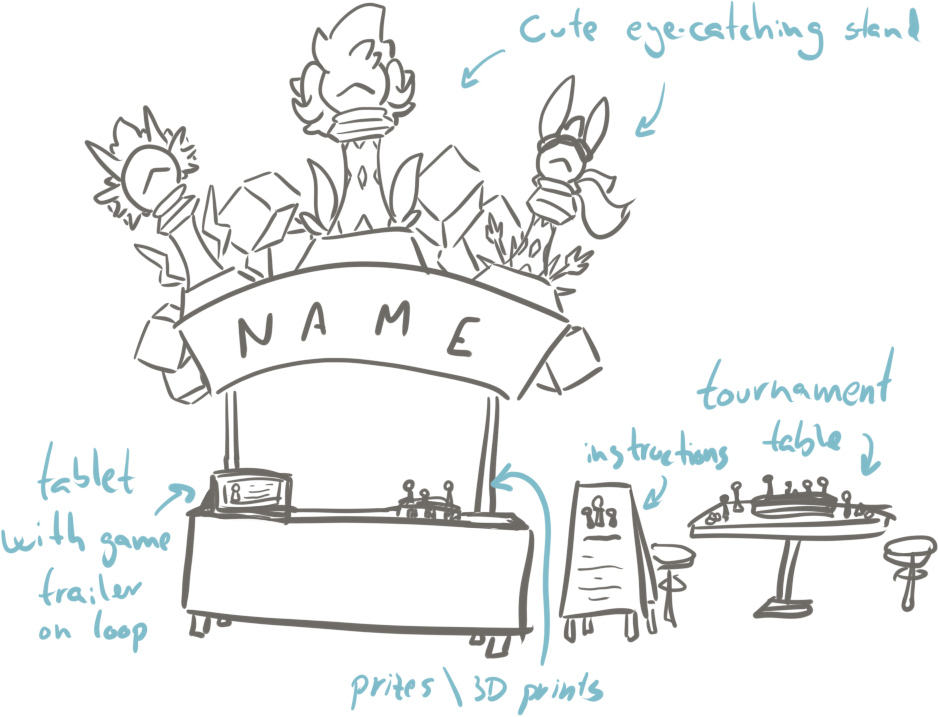 Cute eye-catching stand
NAME
tournament
table
instructions
tablet
with game
trailer
on loop
prizes \ 3D prints